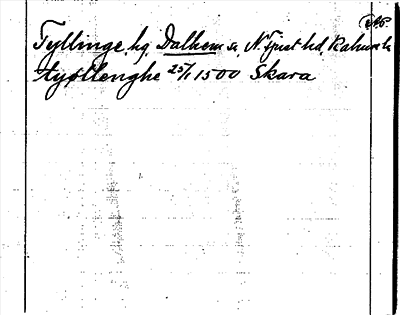 Tyllinge, hg, Dalhem sn, N. Tjust hd,
tyøllenghe 25/1 1500 Skara